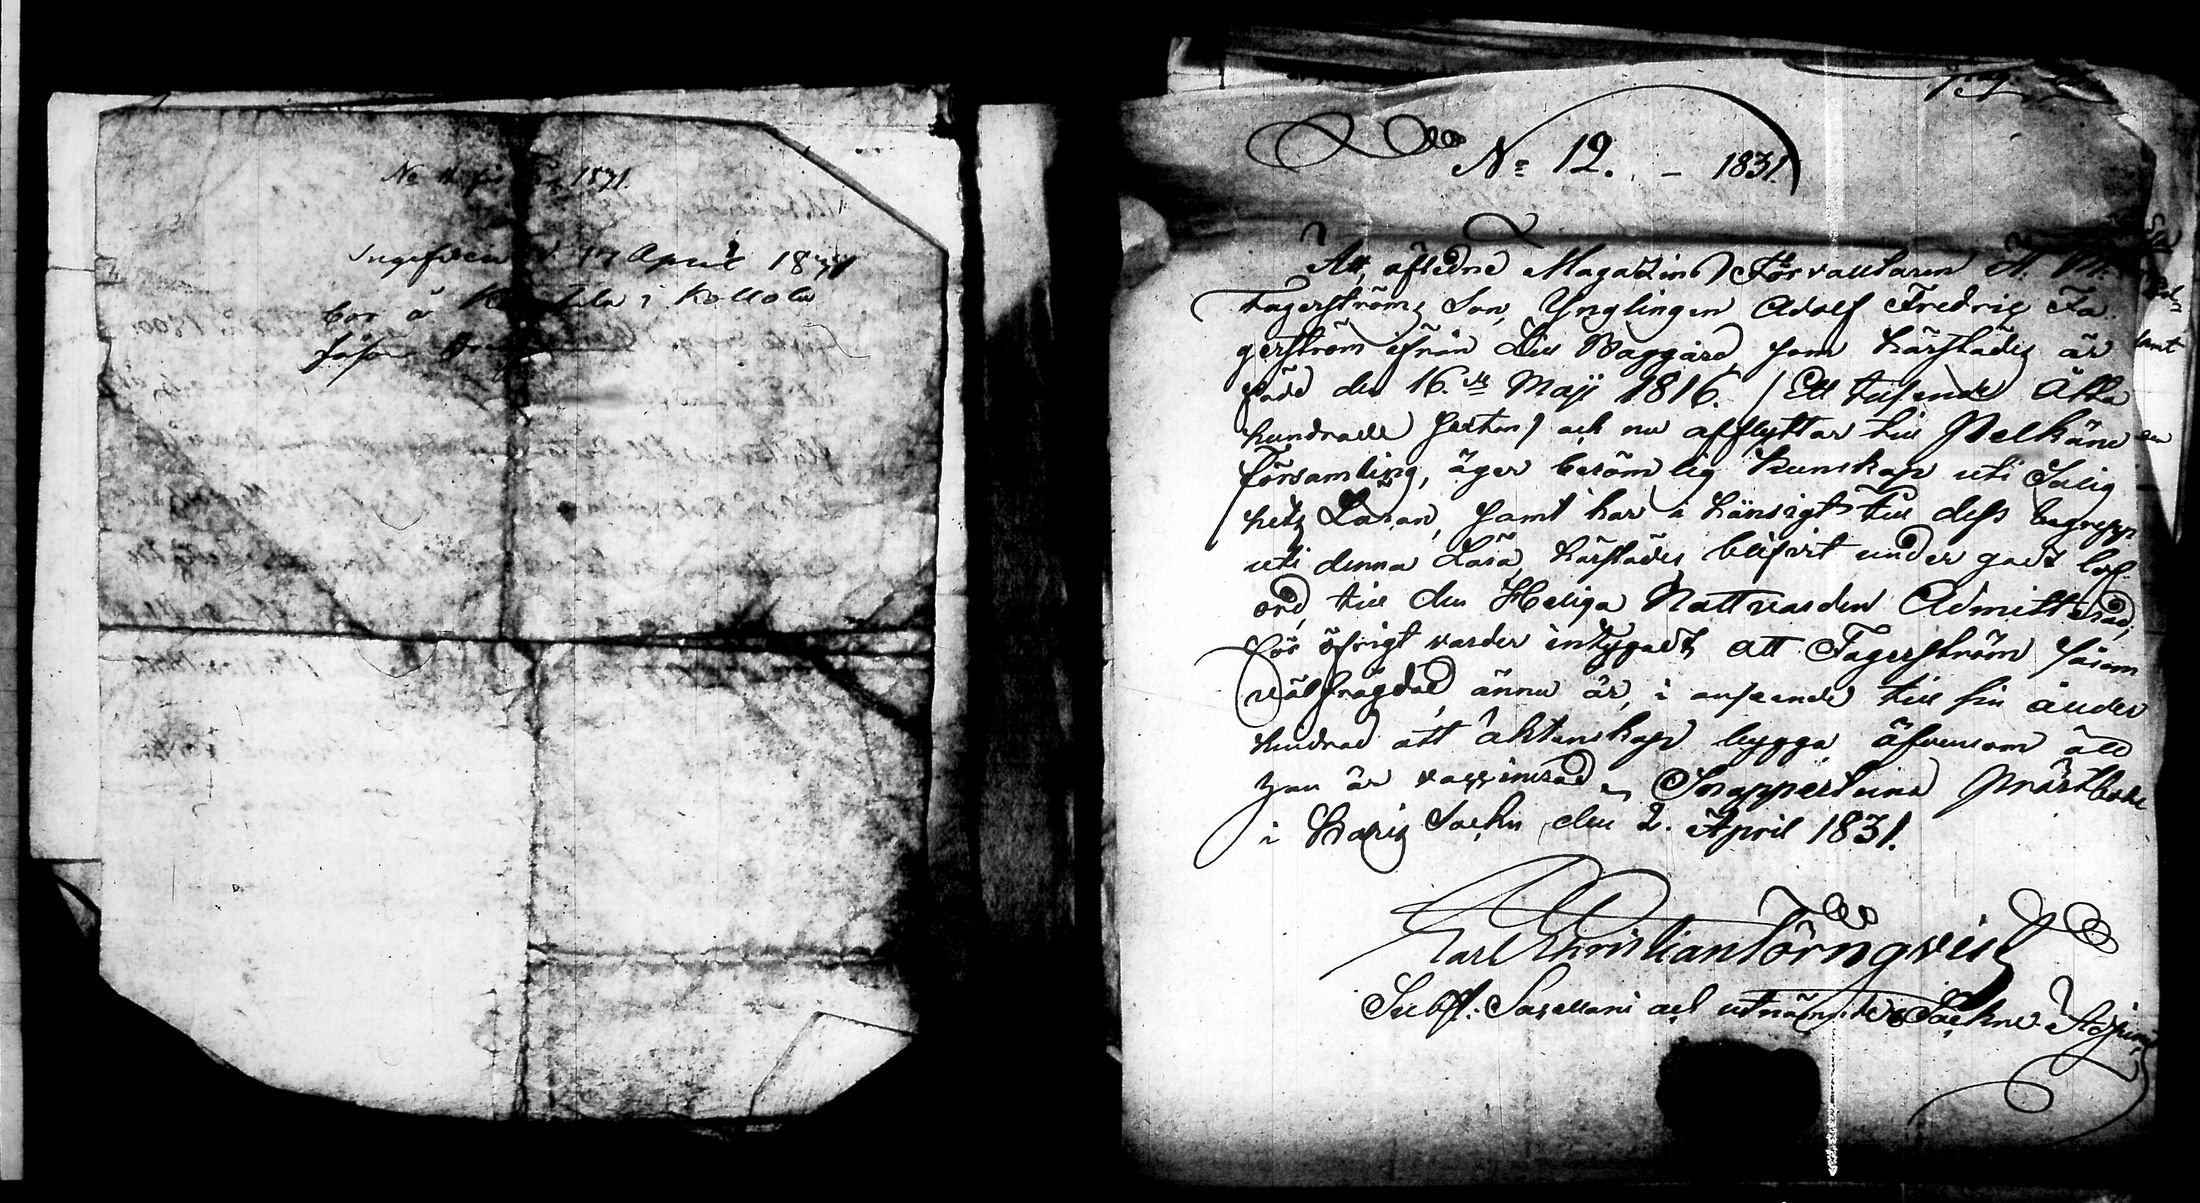 No 11 för 1831.
Ingifven d. 17 April 1831
bor å i Kollola
N:o 12. – 1831.
Att afledne Magazins Förvaltaren A. M.
Fagerströms Son, Ynglingen Adolf Fredric Fa
gerström ifrån Lill Baggård, som härstädes är
född den 16:de Maji 1816. / Ett tusende Åtta
hundrade sexton / och nu afflyttar till Pelkäne
församling, äger berömlig kunskap uti Salig
hetz Läran, samt har i hänsigt till dess begrepp
uti denna Lära härstädes blifvit under godt lof-
ord, till den Heliga Nattvarden Admitterad;
för öfrigt varder intygadt att Fagerström såsom
välfrägdad ännu är, i anseende till sin ålder
hindrad att äktenskap bygga, äfvensom att
han är vaccinerad. Snappertuna Prästbole
i Karis Sochn den 2. April 1831.
Carl Christian Törnqvist
Subst: Sacellani och utnämnde Sochne Adjunct